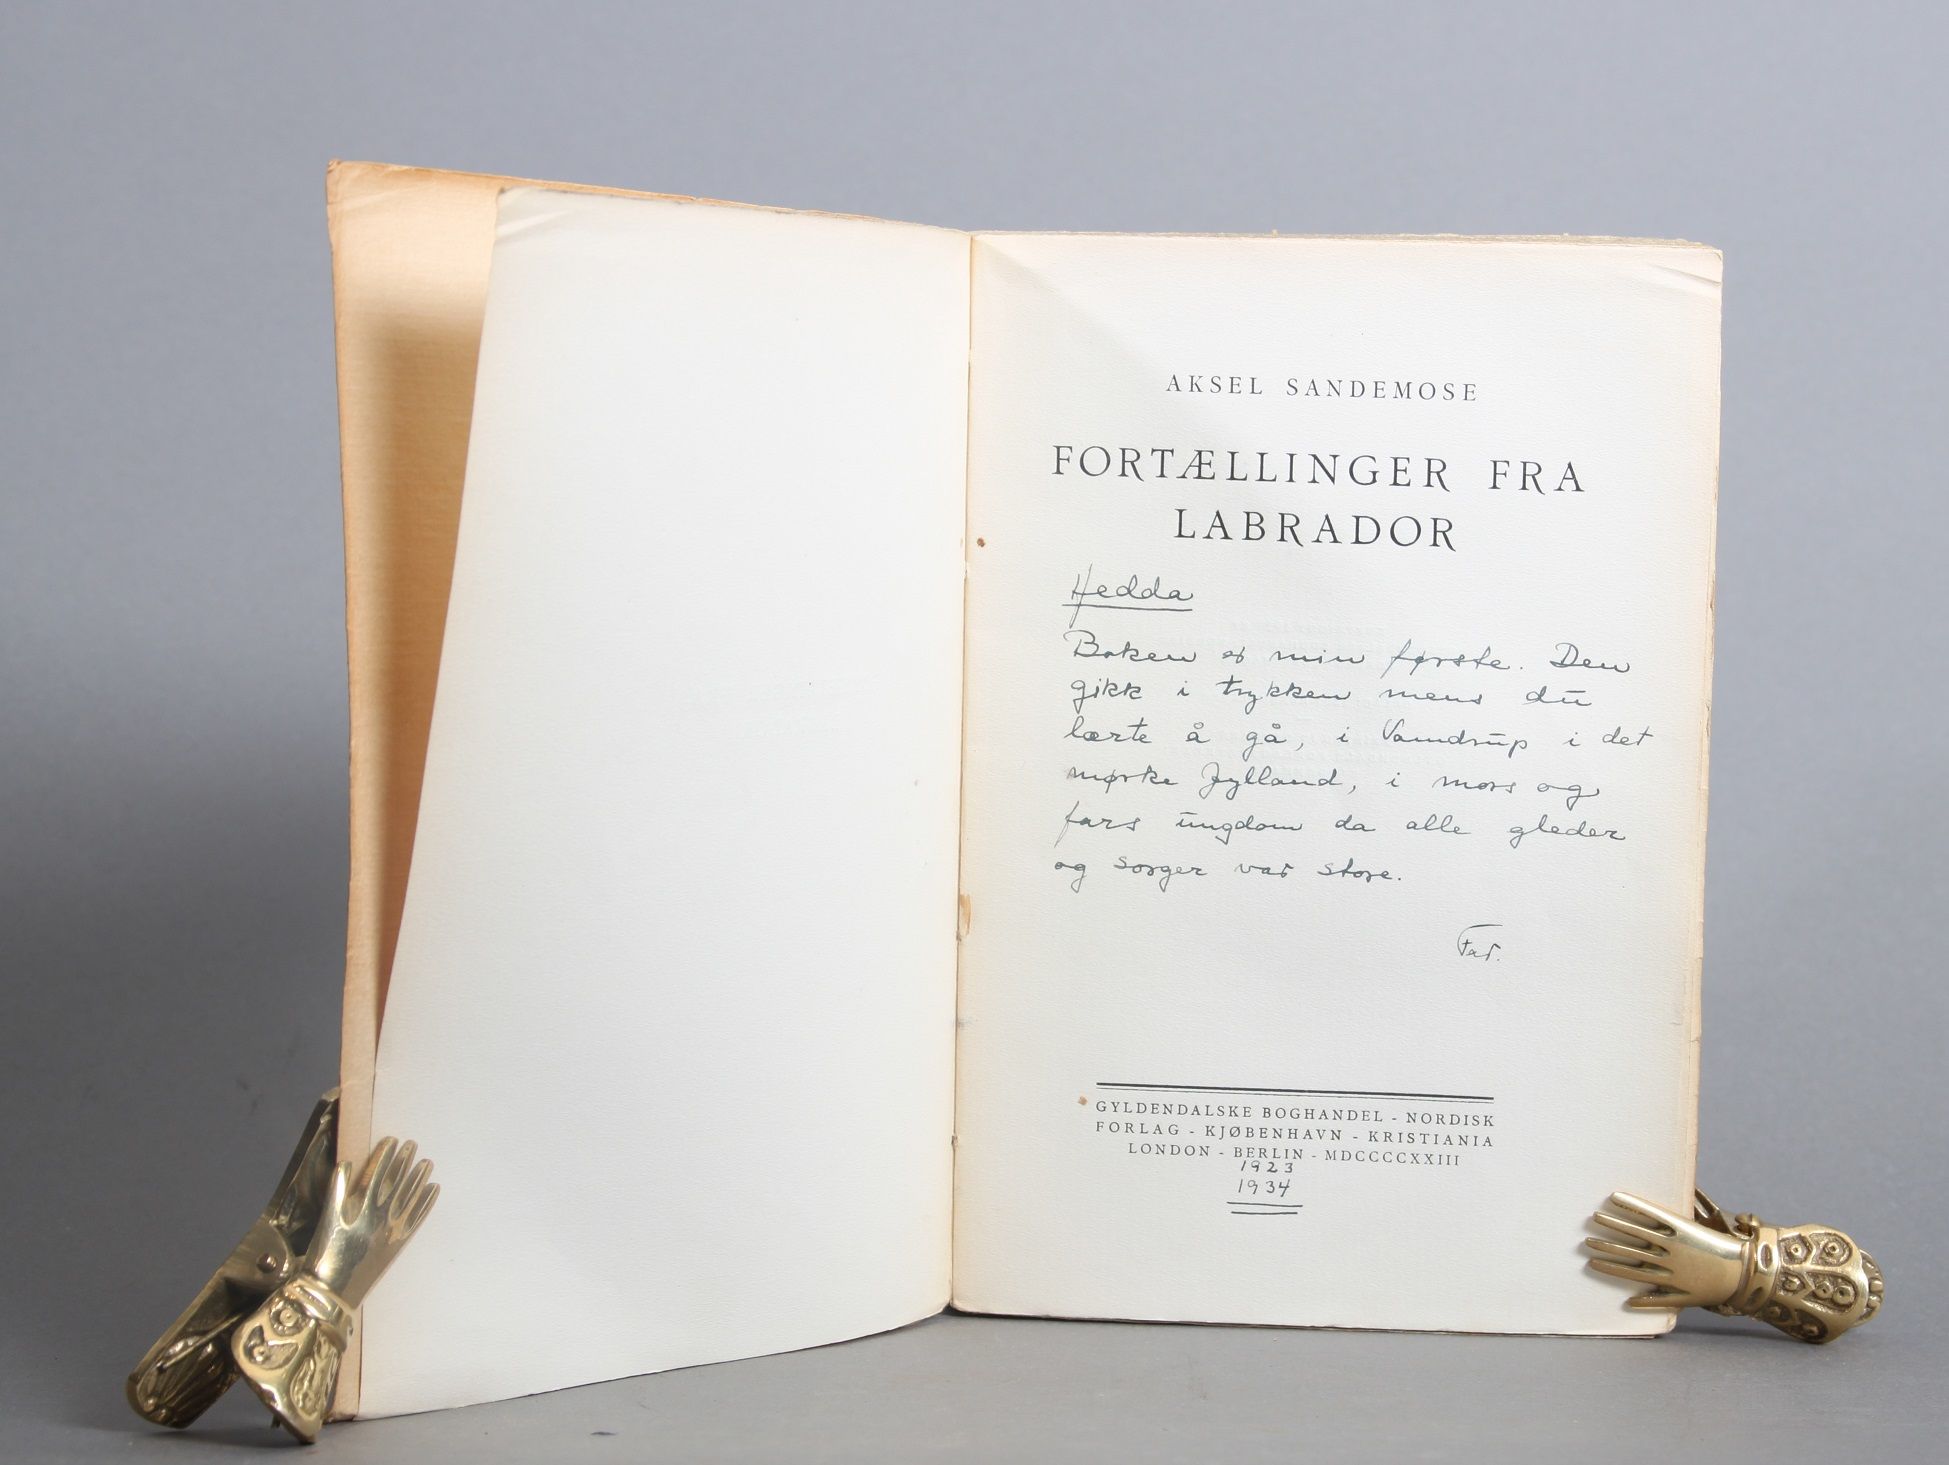 AKSEL SANDEMOSE
FORTÆLLINGER FRA
LABRADOR
Hedda
Boken er min første. Den
gikk i trykken mens du
lærte å gå, i Vamdrup i det
mørke Jylland, i mors og
fars ungdom da alle gleder
og sorger var store.
Far.
GYLDENDALSKE BOGHANDEL - NORDISK
FORLAG - KJØBENHAVN - KRISTIANIA
LONDON - BERLIN - MDCCCCXXIII
1923
1934